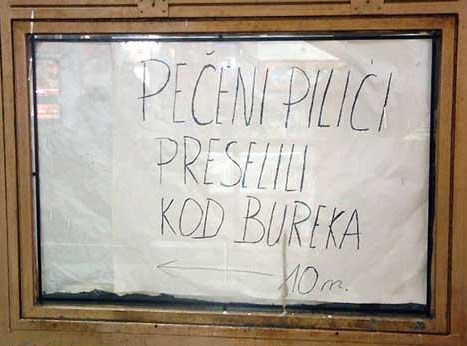 PEČENI PILIĆI
PRESELILI
KOD BUREKA
← 10 m.